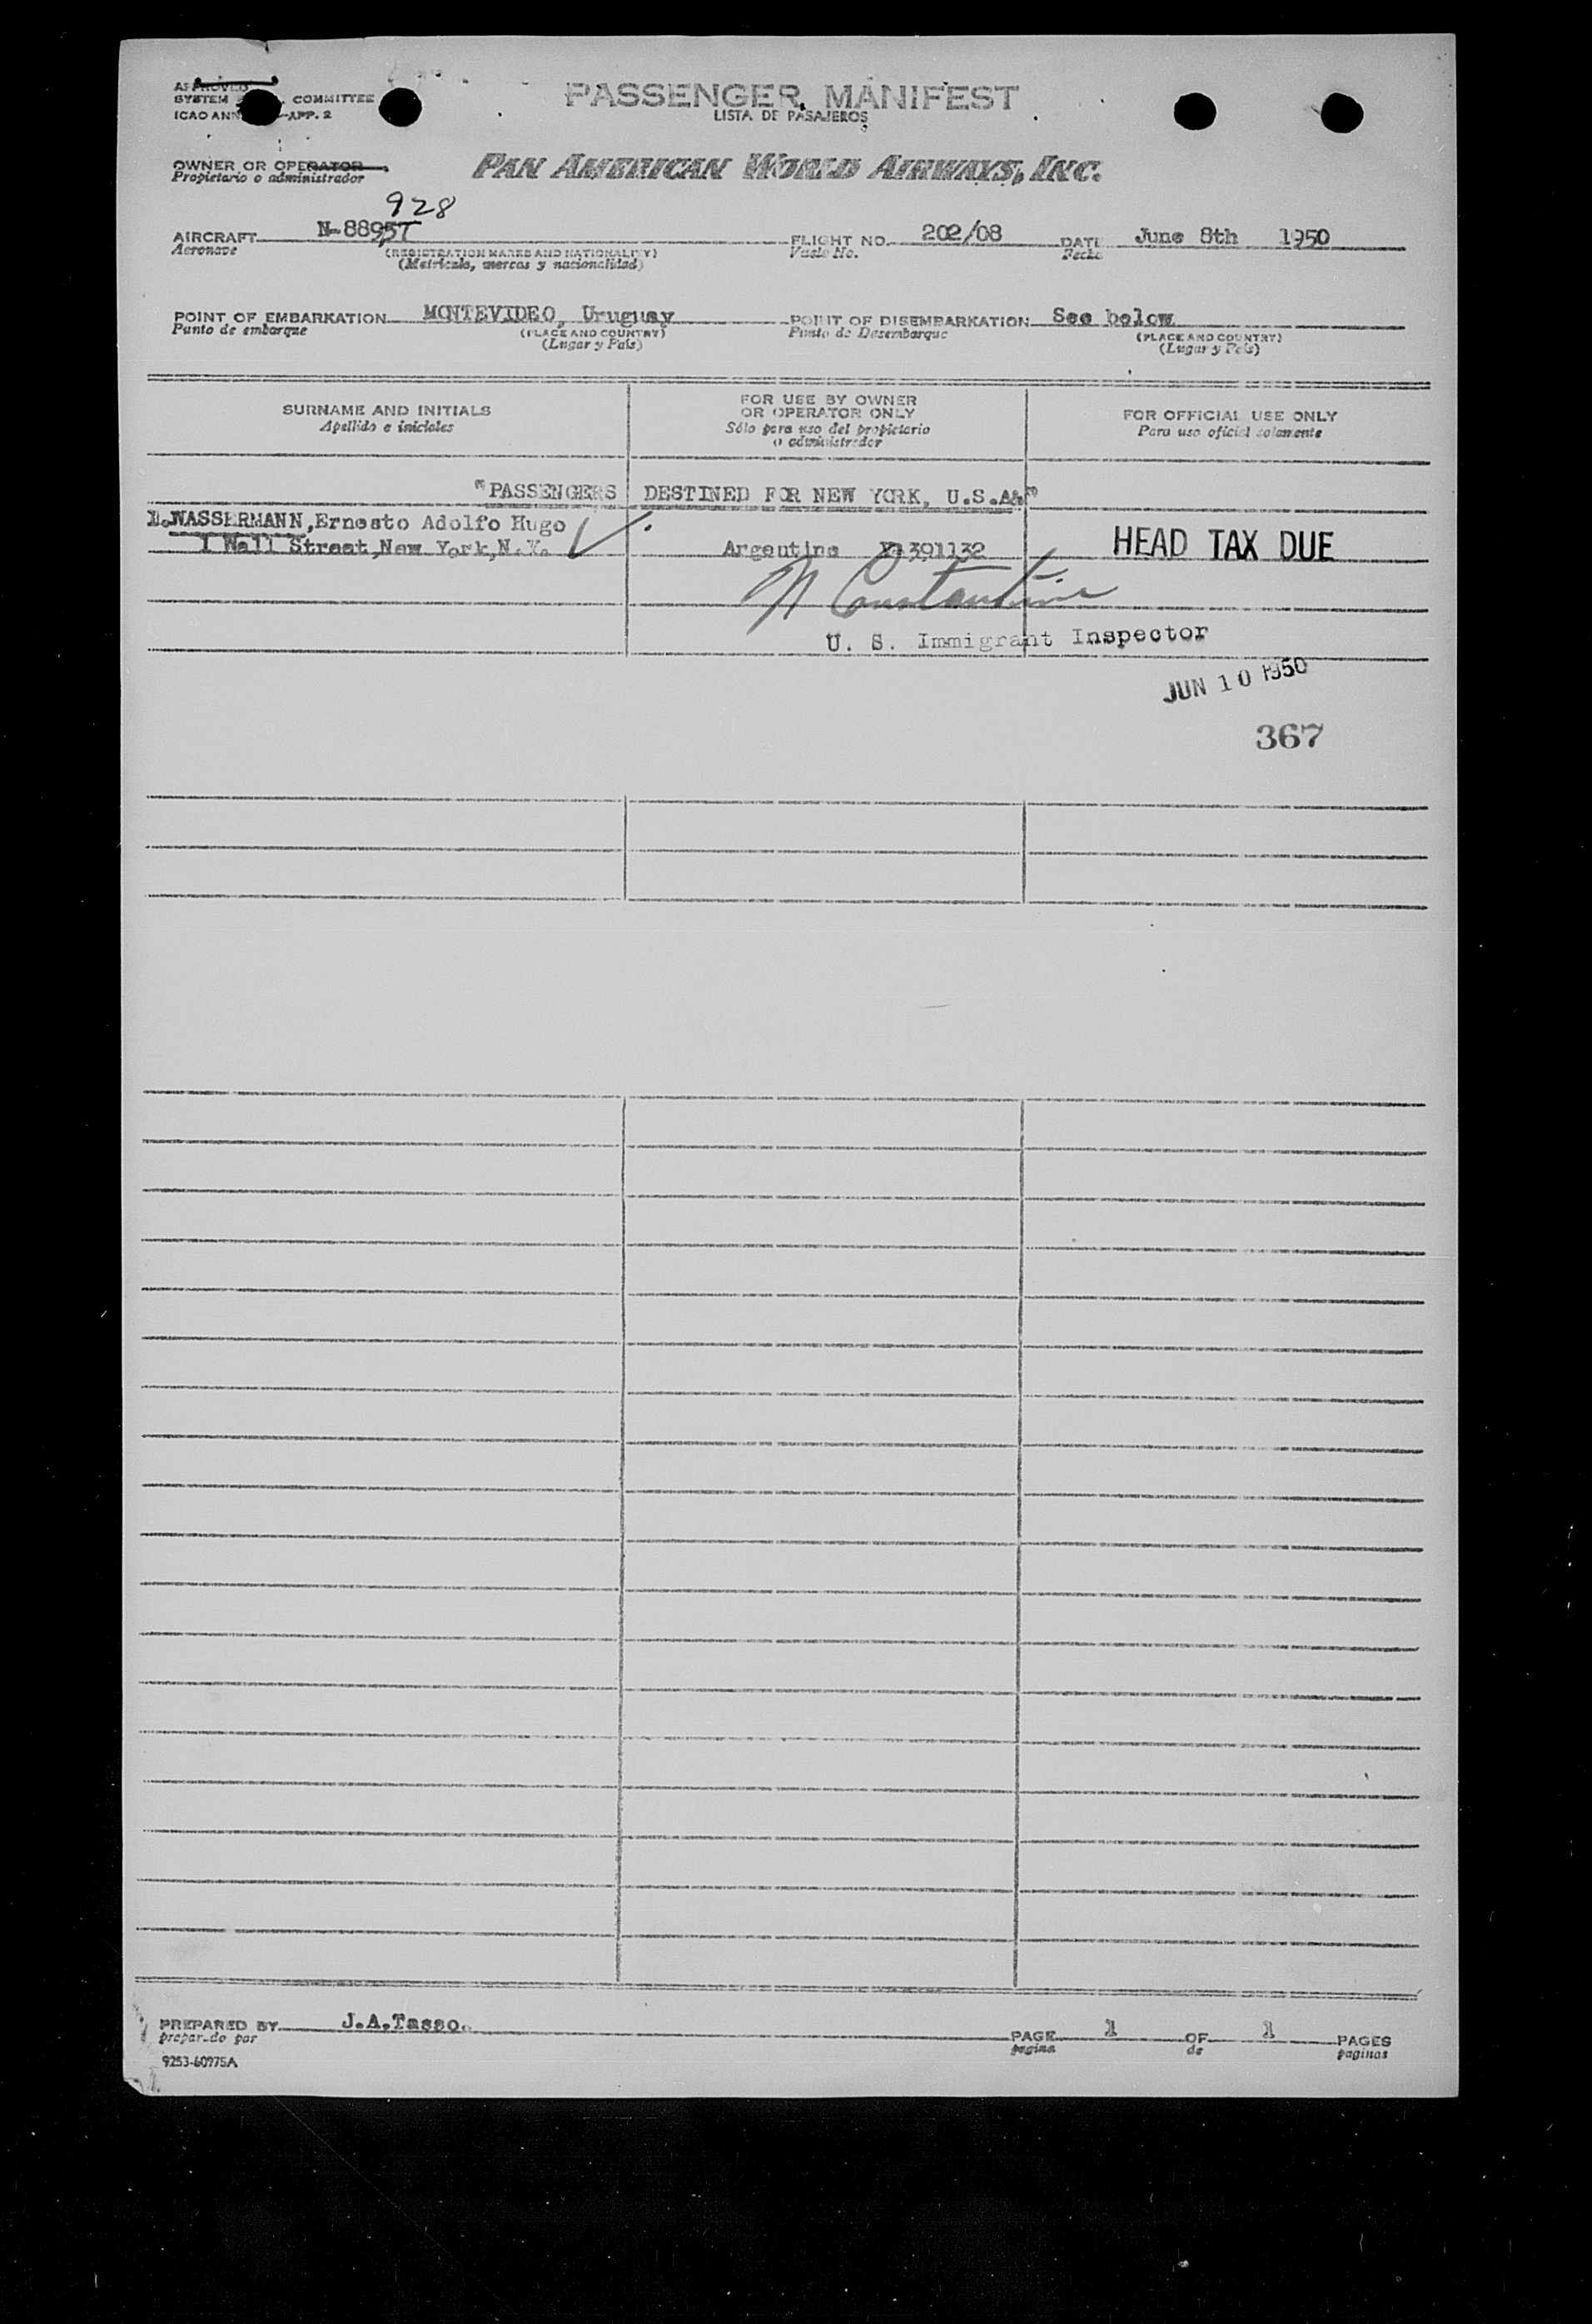 APPROVED
SYSTEM COMMITTEE
ICAO ANN APP. 2
PASSENGER MANIFEST
LISTA DE PASAJEROS
OWNER OR OPERATOR
Propietario o administrador
PAN AMERICAN WORLD AIRWAYS, INC.
928
AIRCRAFT N-88957 FLIGHT NO. 202/08 DATE June 8th 1950
Aeronave (REGISTRATION MARKS AND NATIONALITY) Vuelo No. Fecha
(Matricula, marcas y nacionalidad)
POINT OF EMBARKATION MONTEVIDEO, Uruguay POINT OF DISEMBARKATION See below
Punto de embarque (PLACE AND COUNTRY) Punto de Desembarque (PLACE AND COUNTRY)
(Lugar y País) (Lugar y País)
SURNAME AND INITIALS
Apellido e iniciales
FOR USE BY OWNER
OR OPERATOR ONLY
Sólo para uso del propietario
o administrador
FOR OFFICIAL USE ONLY
Para uso oficial solamente
"PASSENGERS DESTINED FOR NEW YORK, U.S.A."
1.WASSERMANN,Ernesto Adolfo Hugo
1 Wall Street,New York,N.Y. Argentine 391132 HEAD TAX DUE
N Constantine
U. S. Immigrant Inspector
JUN 10 1950
367
PREPARED BY J.A.Tasso. PAGE 1 OF 1 PAGES
preparado por pagina de paginas
9253-60975A